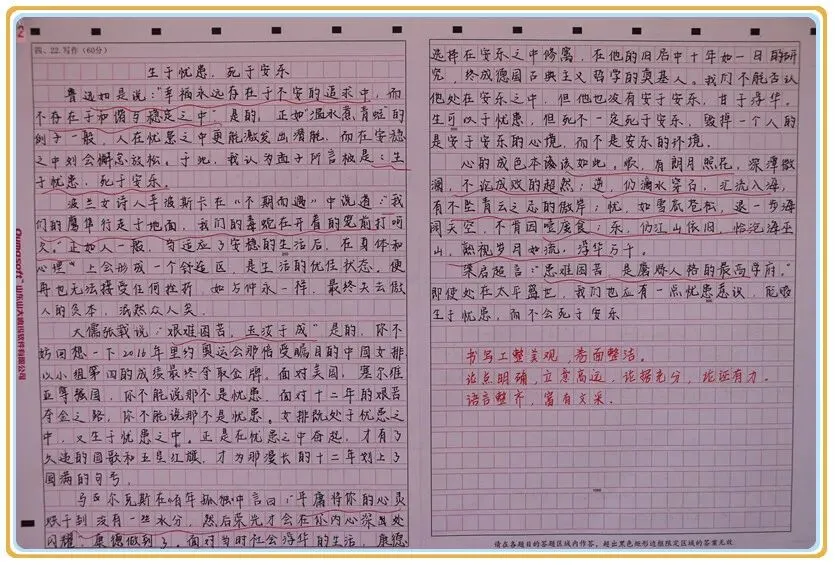 四、22.写作(60分)
生于忧患,死于安乐
鲁迅如是说:"幸福永远存在于不安的追求中,而
不存在于和谐与稳定之中"是的,正如"温水煮青蛙"的
例子一般,人在忧患之中更能激发出潜能,而在安稳
之中则会懈怠放松。于此,我认为孟子所言极是:生
于忧患,死于安乐。
波兰女诗人辛波斯卡在《不期而遇》中说道:"我
们的鹰隼行走于地面,我们的毒蛇在开着的笼前打哈
欠"正如人一般,当适应了安稳的生活后,在身体和
心理上会形成一个舒适区,是生活的优佳状态。便
再也无法接受任何挫折,如与仲永一样,最终失去傲
人的资本,泯然众人矣。
大儒张载说:"艰难困苦,玉汝于成"是的,你不
妨回想一下2016年里约奥运会那倍受瞩目的中国女排
以小组第四的成绩最终夺取金牌。面对美国,塞尔维
亚等强国,你不能说那不是忧患,面对十二年的艰苦
夺金之路,你不能说那不是忧患。女排既处于忧患之
中,又生于忧患之中。正是在忧患之中奋起,才有了
久违的国歌和五星红旗,才为那漫长的十二年划上了
圆满的句号。
马尔克斯在《百年孤独》中言曰:"平庸将你的心灵
烘干到没有一丝水分,然后荣光才会在你内心深处
闪耀"康德做到了。面对当时社会浮华的生活,康德
选择在安乐之中修离,在他的旧居中十年如一日的研
究,终成德国古典主义哲学的奠基人。我们不能否认
他处在安乐之中,但他也没有安于安乐,甘于浮华。
生可以于忧患,但死不一定死于安乐,毁掉一个人的
是安于安乐的心境,而不是安乐的环境。
心的成色本该该如此。顺,有朗月照花,深潭微
澜,不论成败的超然;逆,仍滴水穿石,汇流入海,
有不坠青云之志的傲岸;忧,如雪瓜苍松,退一步海
阔天空,不肯因噎废食;乐,仍江山依旧,临沧海巫
山,熟视岁月如流,浮华万千。
梁启超言:"患难困苦,是磨炼人格的最高学府。"
即使处在太平盛世,我们也应有一点忧患意识,能够
生于忧患,而不会死于安乐
书写工整美观,卷面整洁。
论点明确,立意高远,论据充分,论证有力。
语言整齐,富有文采。
请在各题目的答题区域内作答,超出黑色矩形边框限定区域的答案无效
山东山大鸥玛软件有限公司